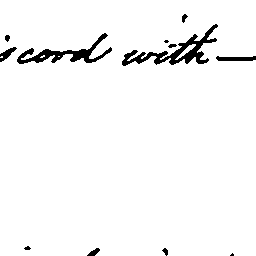 iscord with—